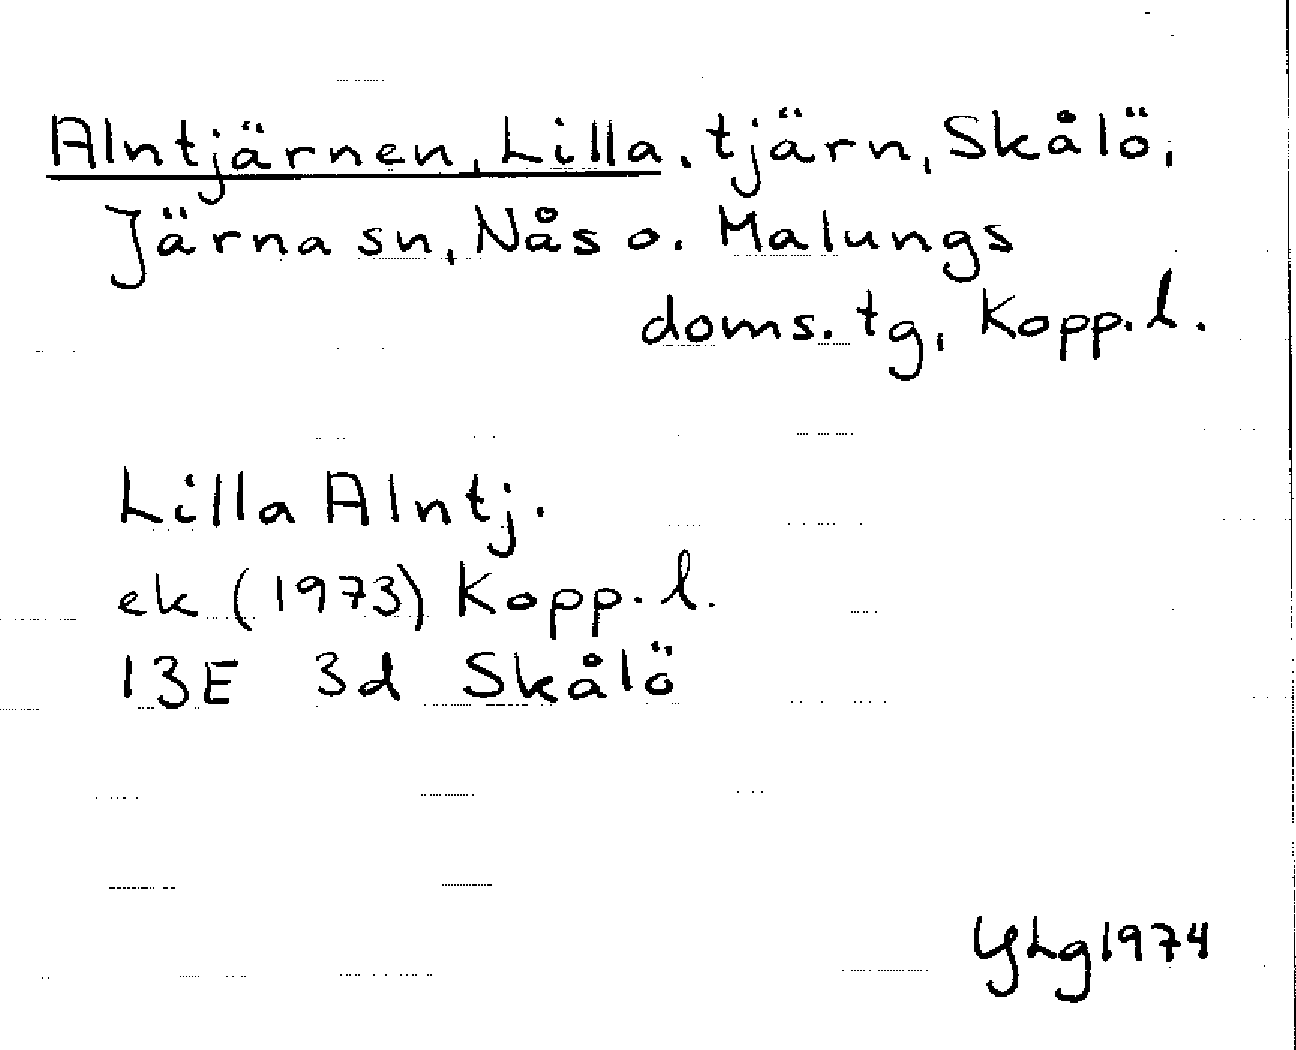 Alntjärnen, Lilla, tjärn, Skålö,
Järna sn, Nås o. Malungs
doms. tg, Kopp. l.
Lilla Alntj.
ek (1973) Kopp. l.
13E 3d Skålö
YLg 1974